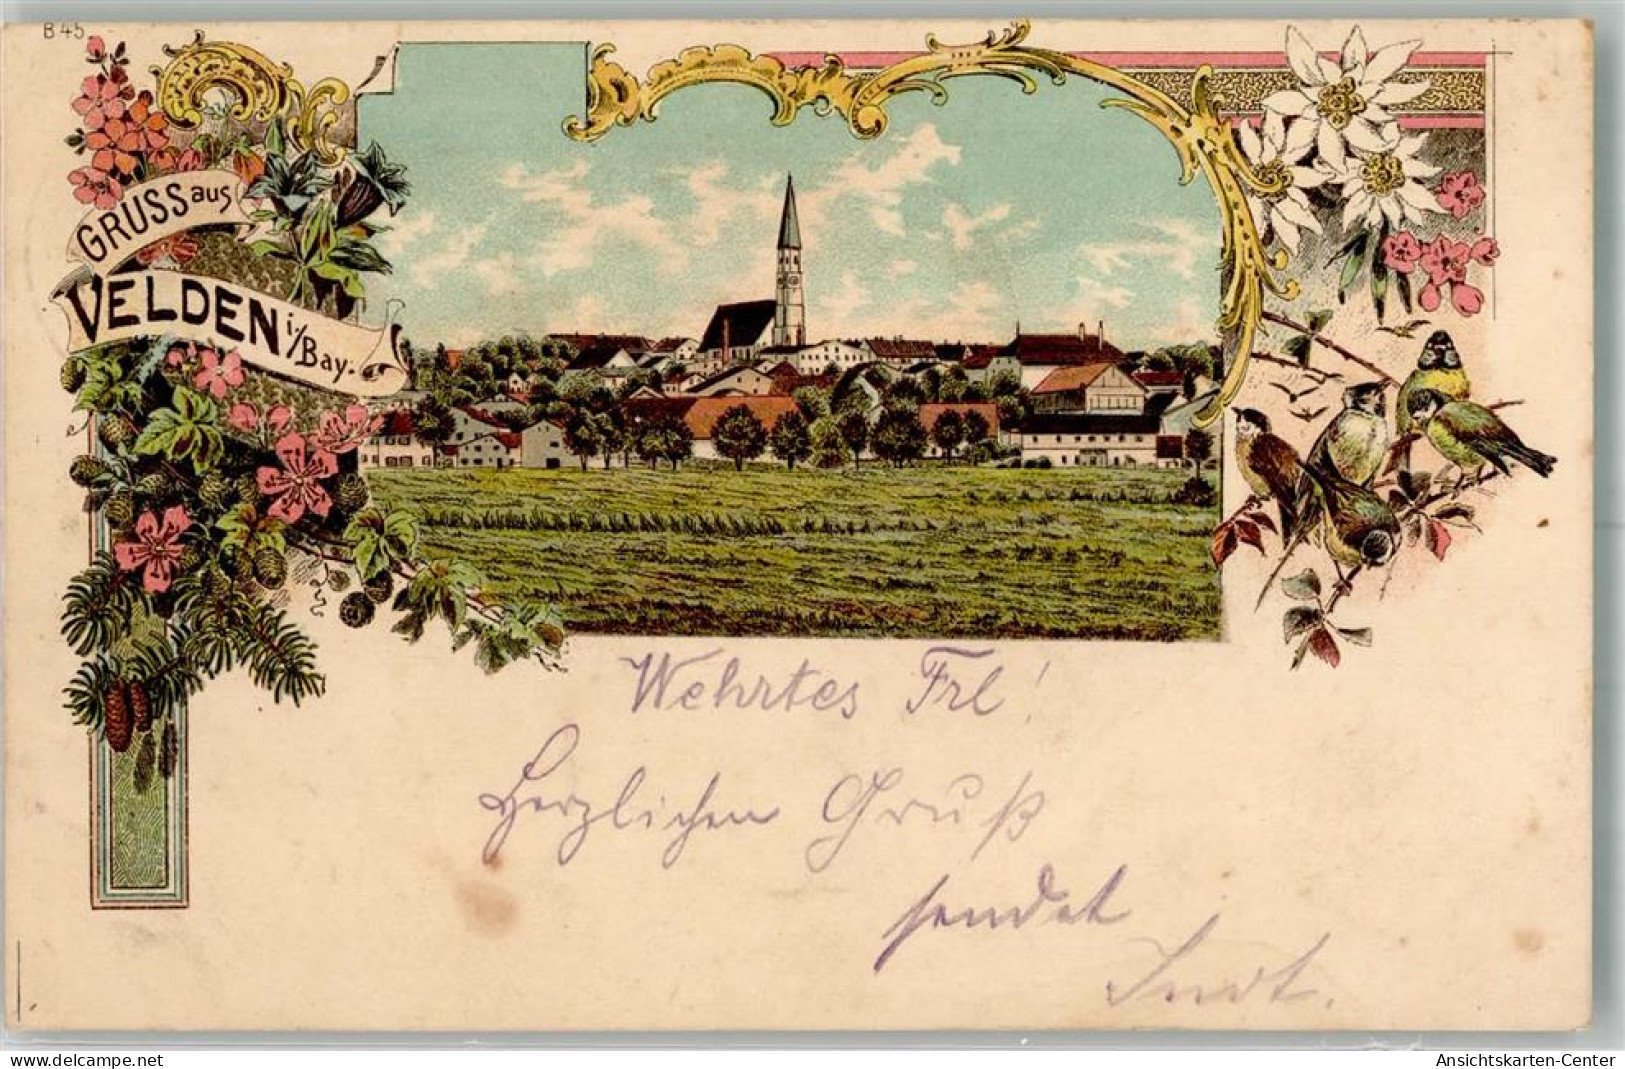 B 45
GRUSS aus
VELDEN i./Bay.
Wehrtes Frl!
Herzlichen Gruß
sendet
Ansichtskarten-Center